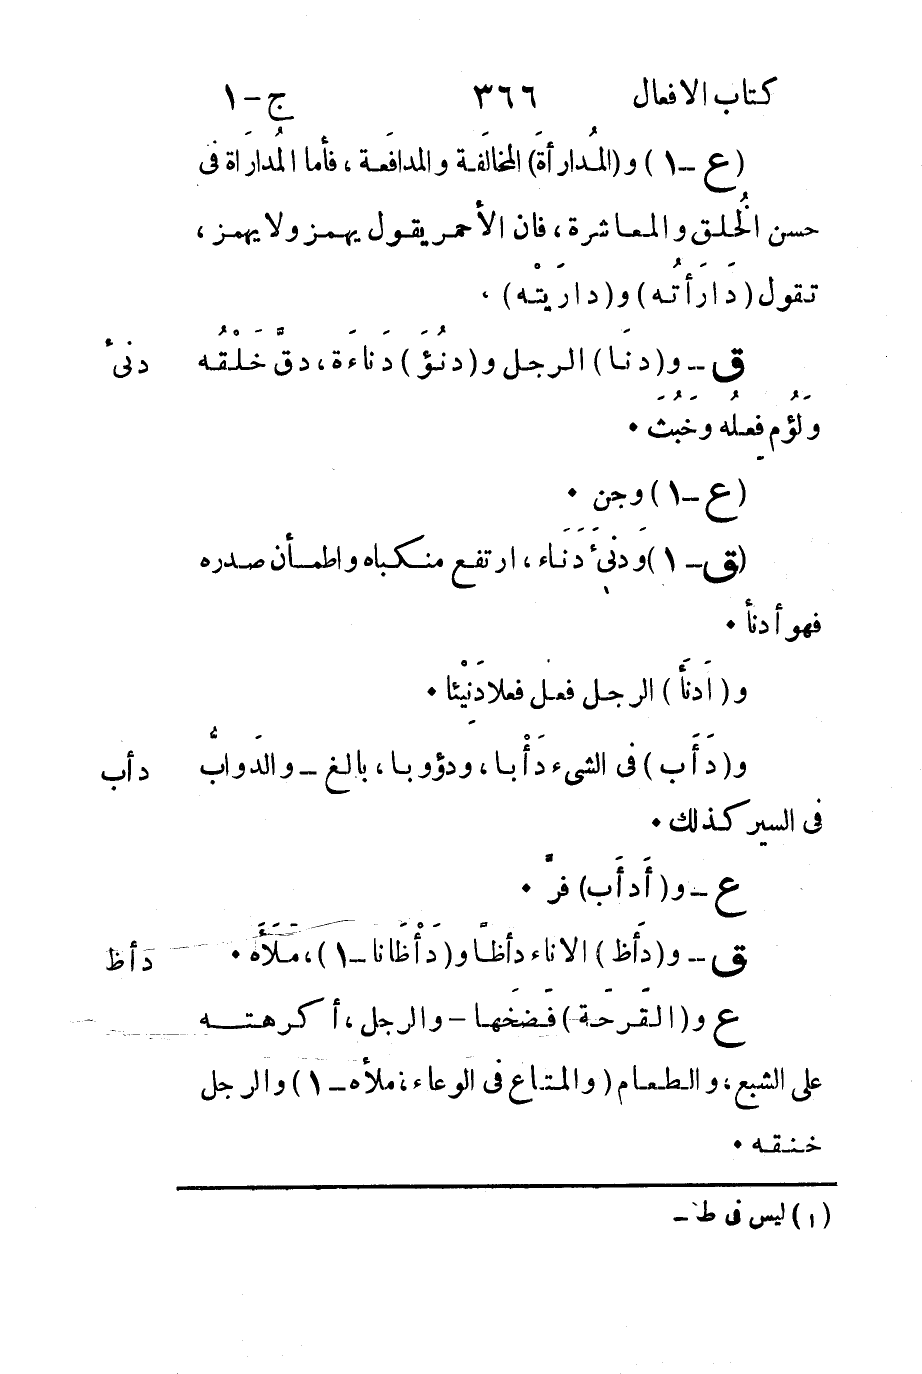 كتاب الافعال ٣٦٦ ج-١
(ع -١) و(المُدارأةَ) المخالَفة والمدافَعة، فأما المُدارَاة فى
حسن الخُلق والمعاشرة، فان الأحمر يقول يهمز ولا يهمز،
تقول (دَارَأتُه) و(دارَيْتَه) ،
ق - و(دنَا) الرجل و(دنُؤَ) دَناءَة، دقَّ خَلْقُه دنىٔ
ولَؤُم فعلُه وخَبُثَ •
(ع -١) وجن •
(ق -١) ودَنِئَ دَنَاء، ارتفع منكباه واطمأن صدره
فهو أدنأ •
و(أدنَأَ) الرجل فعل فعلا دَنِيْئا •
و(دَأَب) فى الشىء دَأْبا، ودؤوبا، بالغ - والدَوابُّ دأب
فى السير كذلك •
ع - و(أَدأَب) فرَّ •
ق - و(دأَظ) الاناء دأظًا و(دَأْظَانا-١)، مَلَأَه • دأظ
ع و(القَرحَة) فَضَخَها - والرجل، أكرهته
على الشبع، والطعام (والمتاع فى الوعاء، ملأه-١) والرجل
خنقه •
(١) ليس فى ط -